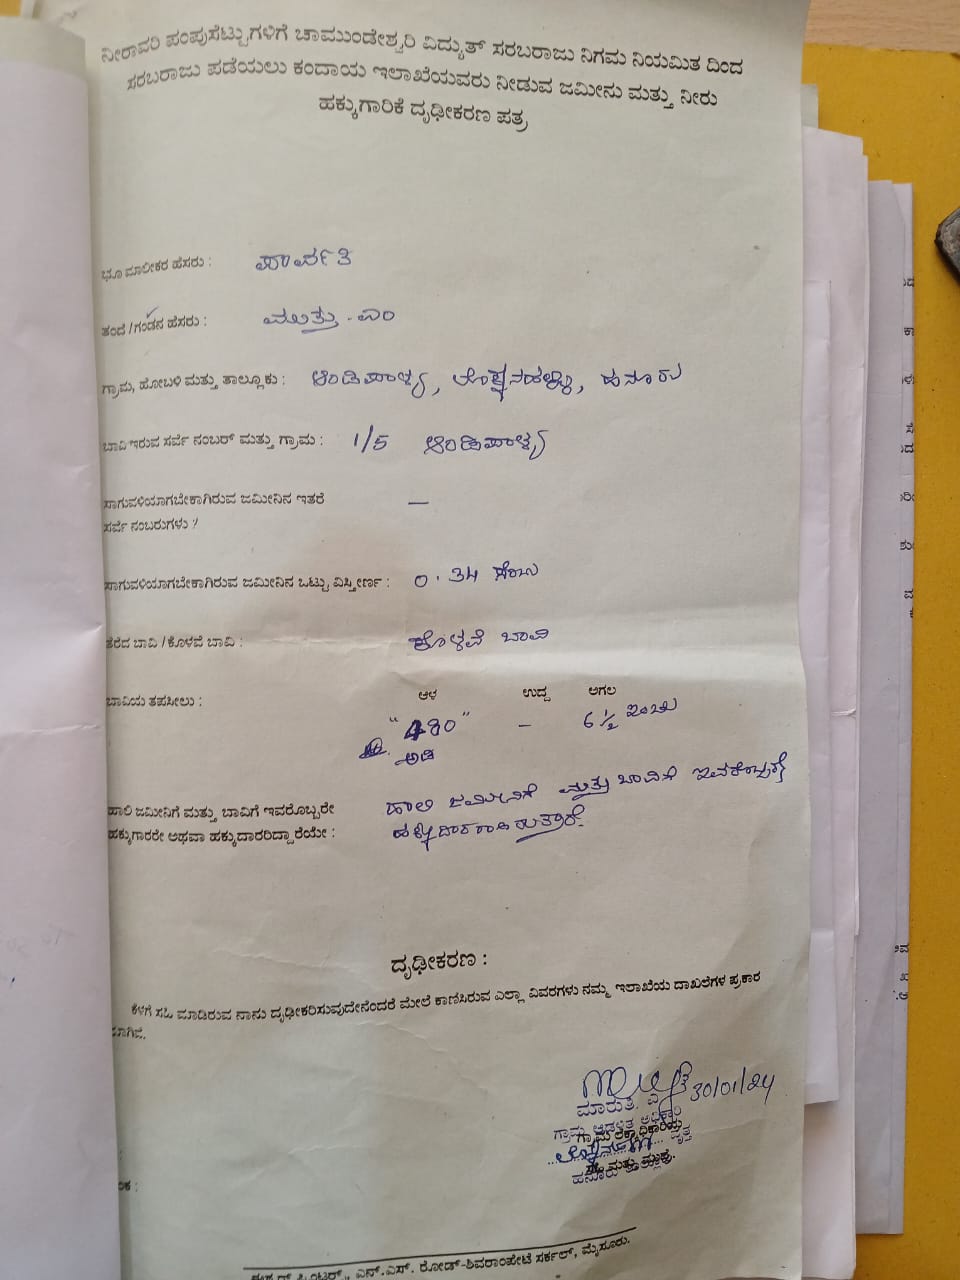 ನೀರಾವರಿ ಪಂಪುಸೆಟ್ಟುಗಳಿಗೆ ಚಾಮುಂಡೇಶ್ವರಿ ವಿದ್ಯುತ್ ಸರಬರಾಜು ನಿಗಮ ನಿಯಮಿತ ದಿಂದ
ಸರಬರಾಜು ಪಡೆಯಲು ಕಂದಾಯ ಇಲಾಖೆಯವರು ನೀಡುವ ಜಮೀನು ಮತ್ತು ನೀರು
ಹಕ್ಕುಗಾರಿಕೆ ದೃಢೀಕರಣ ಪತ್ರ
ಭೂ ಮಾಲೀಕರ ಹೆಸರು : ಪಾರ್ವತಿ
ತಂದೆ /ಗಂಡನ ಹೆಸರು : ಮುತ್ತು . ಎಂ
ಗ್ರಾಮ, ಹೋಬಳಿ ಮತ್ತು ತಾಲ್ಲೂಕು : ಆಂಡಿಪಾಳ್ಯ, ಲೊಕ್ಕನಹಳ್ಳಿ, ಹನೂರು
ಬಾವಿ ಇರುವ ಸರ್ವೆ ನಂಬರ್ ಮತ್ತು ಗ್ರಾಮ : 1/5 ಆಂಡಿಪಾಳ್ಯ
ಸಾಗುವಳಿಯಾಗಬೇಕಾಗಿರುವ ಜಮೀನಿನ ಇತರೆ —
ಸರ್ವೆ ನಂಬರುಗಳು ?
ಸಾಗುವಳಿಯಾಗಬೇಕಾಗಿರುವ ಜಮೀನಿನ ಒಟ್ಟು ವಿಸ್ತೀರ್ಣ : 0.34 ಸೆಂಟು
ತೆರೆದ ಬಾವಿ /ಕೊಳವೆ ಬಾವಿ : ಕೊಳವೆ ಬಾವಿ
ಬಾವಿಯ ತಪಸೀಲು : ಆಳ ಉದ್ದ ಅಗಲ
"480" – 6 ½ ಇಂಚು
ಅಡಿ
ಹಾಲಿ ಜಮೀನಿಗೆ ಮತ್ತು ಬಾವಿಗೆ ಇವರೊಬ್ಬರೇ ಹಾಲಿ ಜಮೀನಿಗೆ ಮತ್ತು ಬಾವಿಗೆ ಇವರೊಬ್ಬರೇ
ಹಕ್ಕುಗಾರರೇ ಅಥವಾ ಹಕ್ಕುದಾರರಿದ್ದಾರೆಯೇ : ಹಕ್ಕುದಾರರಾಗಿರುತ್ತಾರೆ.
ದೃಢೀಕರಣ :
ಕೆಳಗೆ ಸಹಿ ಮಾಡಿರುವ ನಾನು ದೃಢೀಕರಿಸುವುದೇನೆಂದರೆ ಮೇಲೆ ಕಾಣಿಸಿರುವ ಎಲ್ಲಾ ವಿವರಗಳು ನಮ್ಮ ಇಲಾಖೆಯ ದಾಖಲೆಗಳ ಪ್ರಕಾರ
30/01/24
ಮಾರುತಿ. ವಿ
ಗ್ರಾಮ ಆಡಳಿತ ಅಧಿಕಾರಿ
ಗ್ರಾಮ ಲೆಕ್ಕಾಧಿಕಾರಿಯ
ವೃತ್ತ
ಸಹಿ ಮತ್ತು ಮುದ್ರೆ.
ಹನೂರು ತಾಲ್ಲೂಕು
ಎನ್.ಎಸ್. ರೋಡ್-ಶಿವರಾಂಪೇಟೆ ಸರ್ಕಲ್, ಮೈಸೂರು.